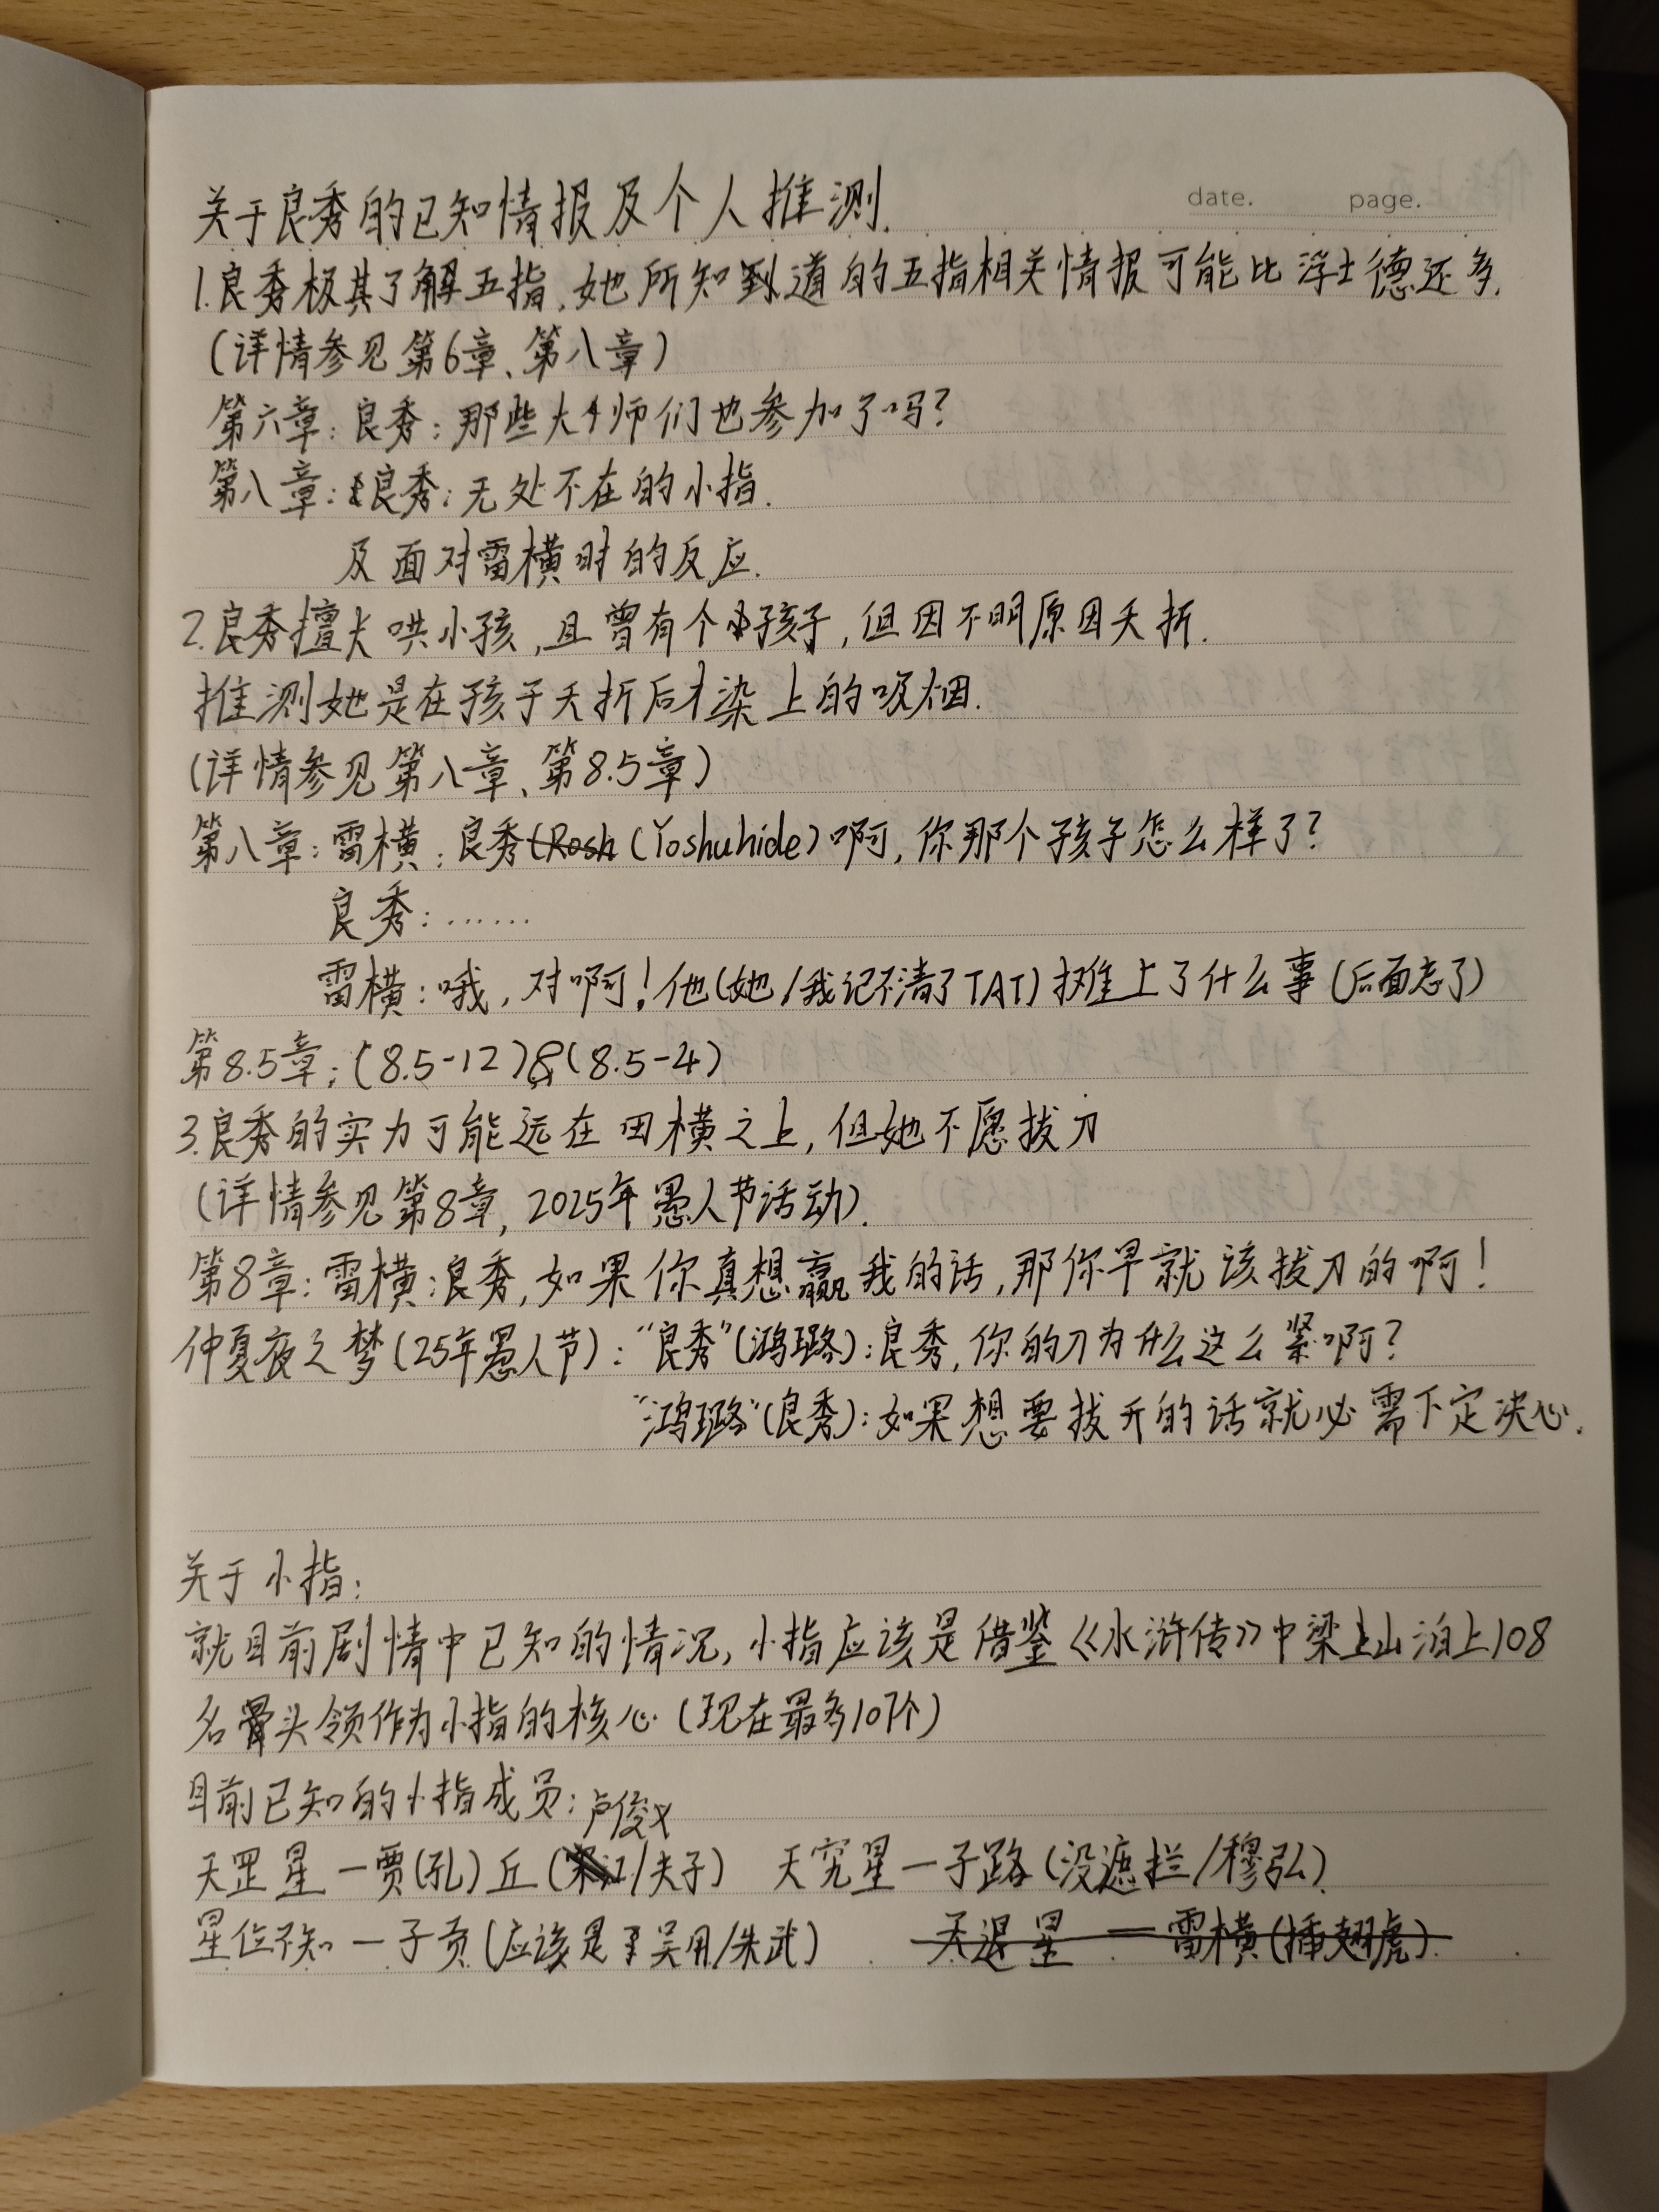 date. page.
关于良秀的已知情报及个人推测.
1.良秀极其了解五指,她所知到道的五指相关情报可能比浮士德还多.
(详情参见第6章、第八章)
第六章:良秀:那些大师们也参加了吗?
第八章:良秀:无处不在的小指.
及面对雷横时的反应.
2.良秀擅长哄小孩,且曾有个孩子,但因不明原因夭折.
推测她是在孩子夭折后才染上的吸烟.
(详情参见第八章、第8.5章)
第八章:雷横:良秀(Rosh (Yoshuhide)啊,你那个孩子怎么样了?
良秀:……
雷横:哦,对啊!他(她/我记不清了TAT)摊上了什么事(后面忘了)
第8.5章:(8.5-12)&(8.5-4)
3.良秀的实力可能远在田横之上,但她不愿拔刀
(详情参见第8章,2025年愚人节活动).
第8章:雷横:良秀,如果你真想赢我的话,那你早就该拔刀的啊!
仲夏夜之梦(25年愚人节):“良秀”(鸿璐):良秀,你的刀为什么这么紧啊?
“鸿璐”(良秀):如果想要拔开的话就必需下定决心.
关于小指:
就目前剧情中已知的情况,小指应该是借鉴《水浒传》中梁山泊上108
名头领作为小指的核心(现在最多107个)
目前已知的小指成员:
卢俊义
天罡星—贾(孔)丘(宋江/夫子) 天究星—子路(没遮拦/穆弘)
星位不知—子贡(应该是吴用/朱武) 天退星—雷横(插翅虎).